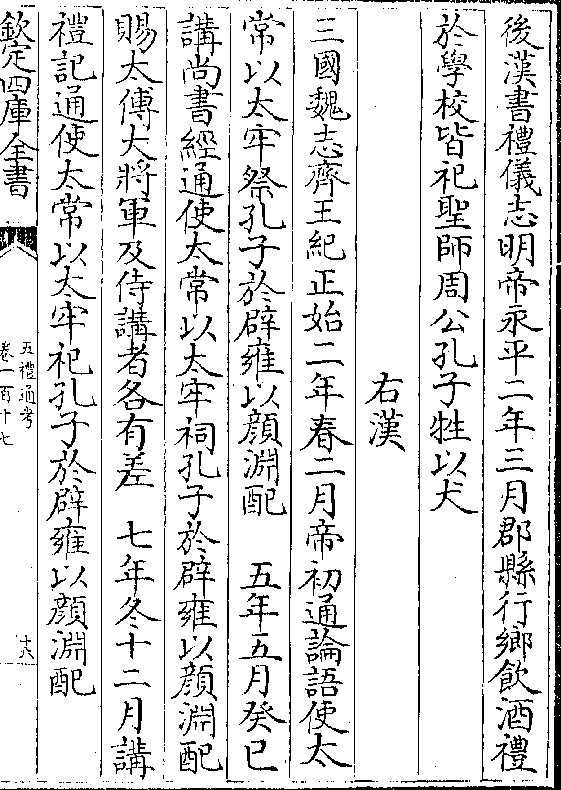 後漢書禮儀志明帝永平二年三月郡縣行鄉飲酒禮
於學校皆祀聖師周公孔子牲以犬
右漢
三國魏志齊王紀正始二年春二月帝初通論語使太
常以太牢祭孔子於辟雍以顔淵配　五年五月癸已
講尚書經通使太常以太牢祠孔子於辟雍以顔淵配
賜太傅大將軍及侍講者各有差　七年冬十二月講
禮記通使太常以太牢祀孔子於辟雍以顔淵配
欽定四庫全書
五禮通考
卷一百十七
十八